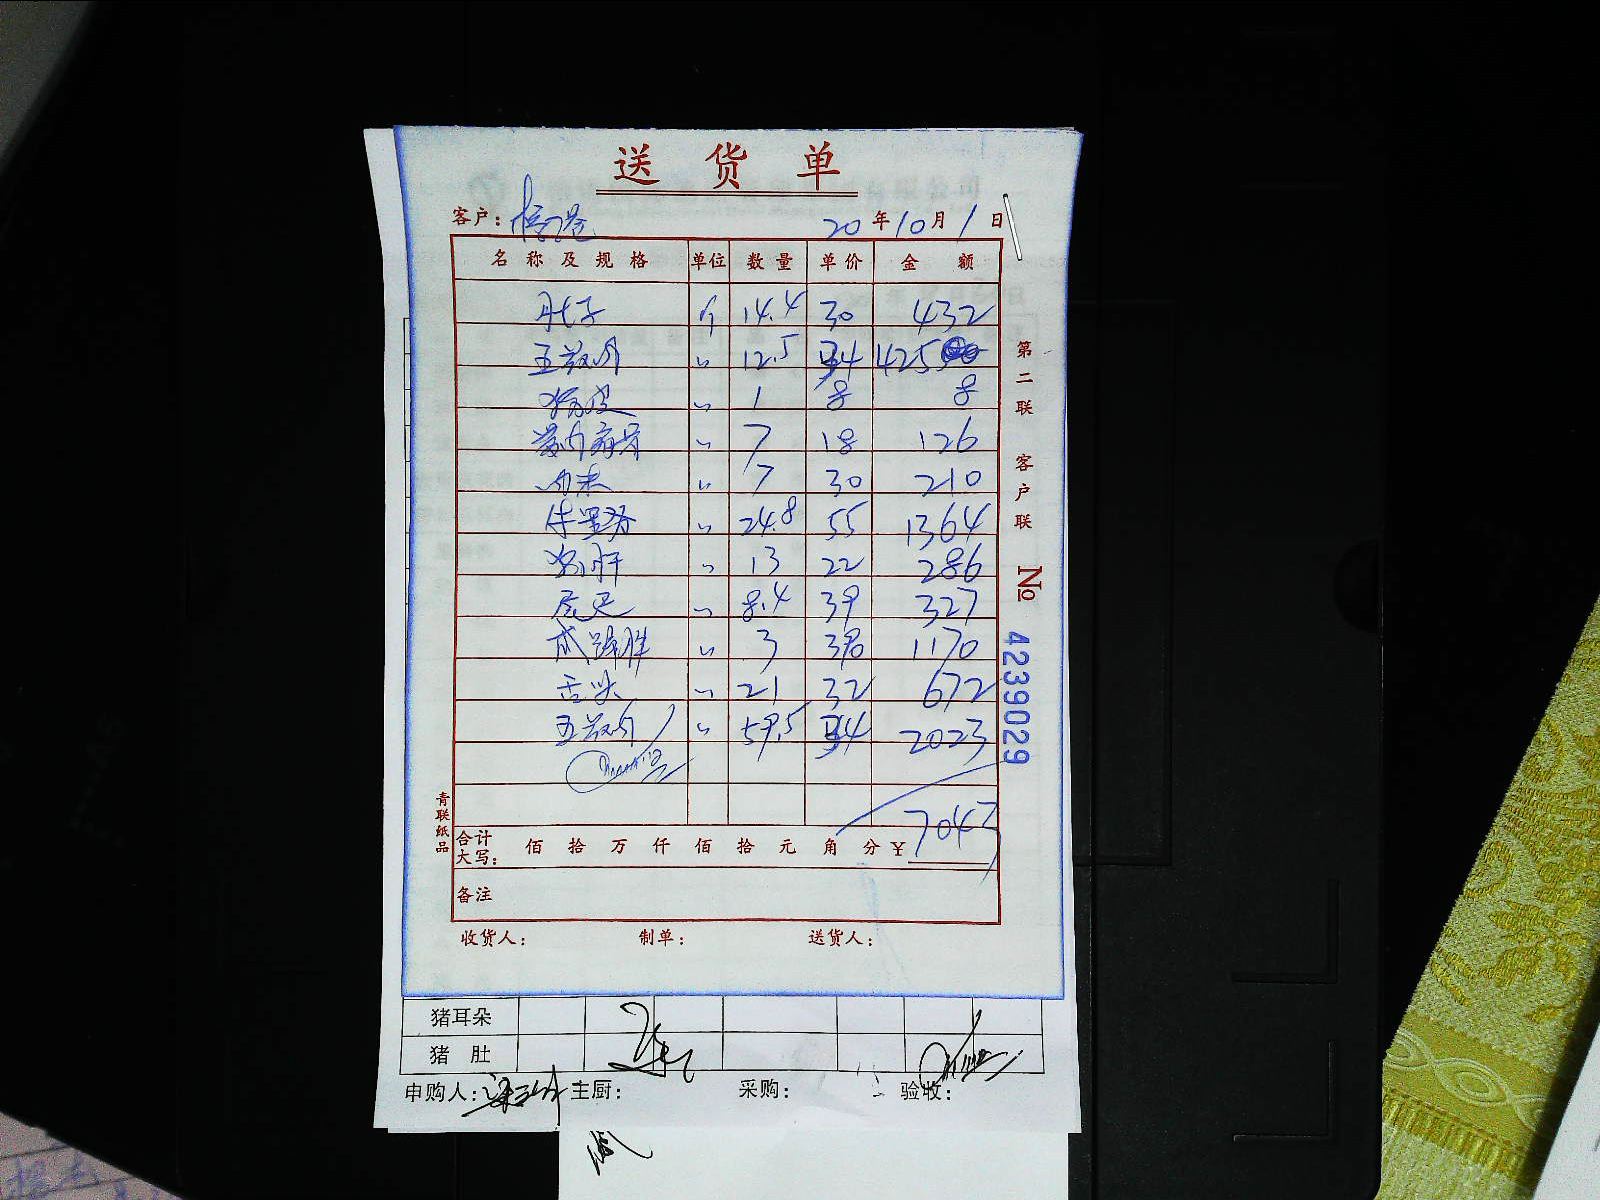 送货单
客户: 20年10月1日
名称及规格 单位 数量 单价 金额
肚子 斤 14.4 30 432
五花肉 〃 12.5 34 425
猪皮 〃 1 8 8
〃 7 18 126
肉末 〃 7 30 210
牛里脊 〃 24.8 55 1364
猪肝 〃 13 22 286
〃 8.4 39 327
〃 3 1170
舌头 〃 21 32 672
五花肉 〃 59.5 34 2023
合计大写: 佰 拾 万 仟 佰 拾 元 角 分 ¥ 7043
备注
收货人: 制单: 送货人:
第二联 客户联 № 4239029
青联纸品
猪耳朵
猪 肚
申购人: 主厨: 采购: 验收: